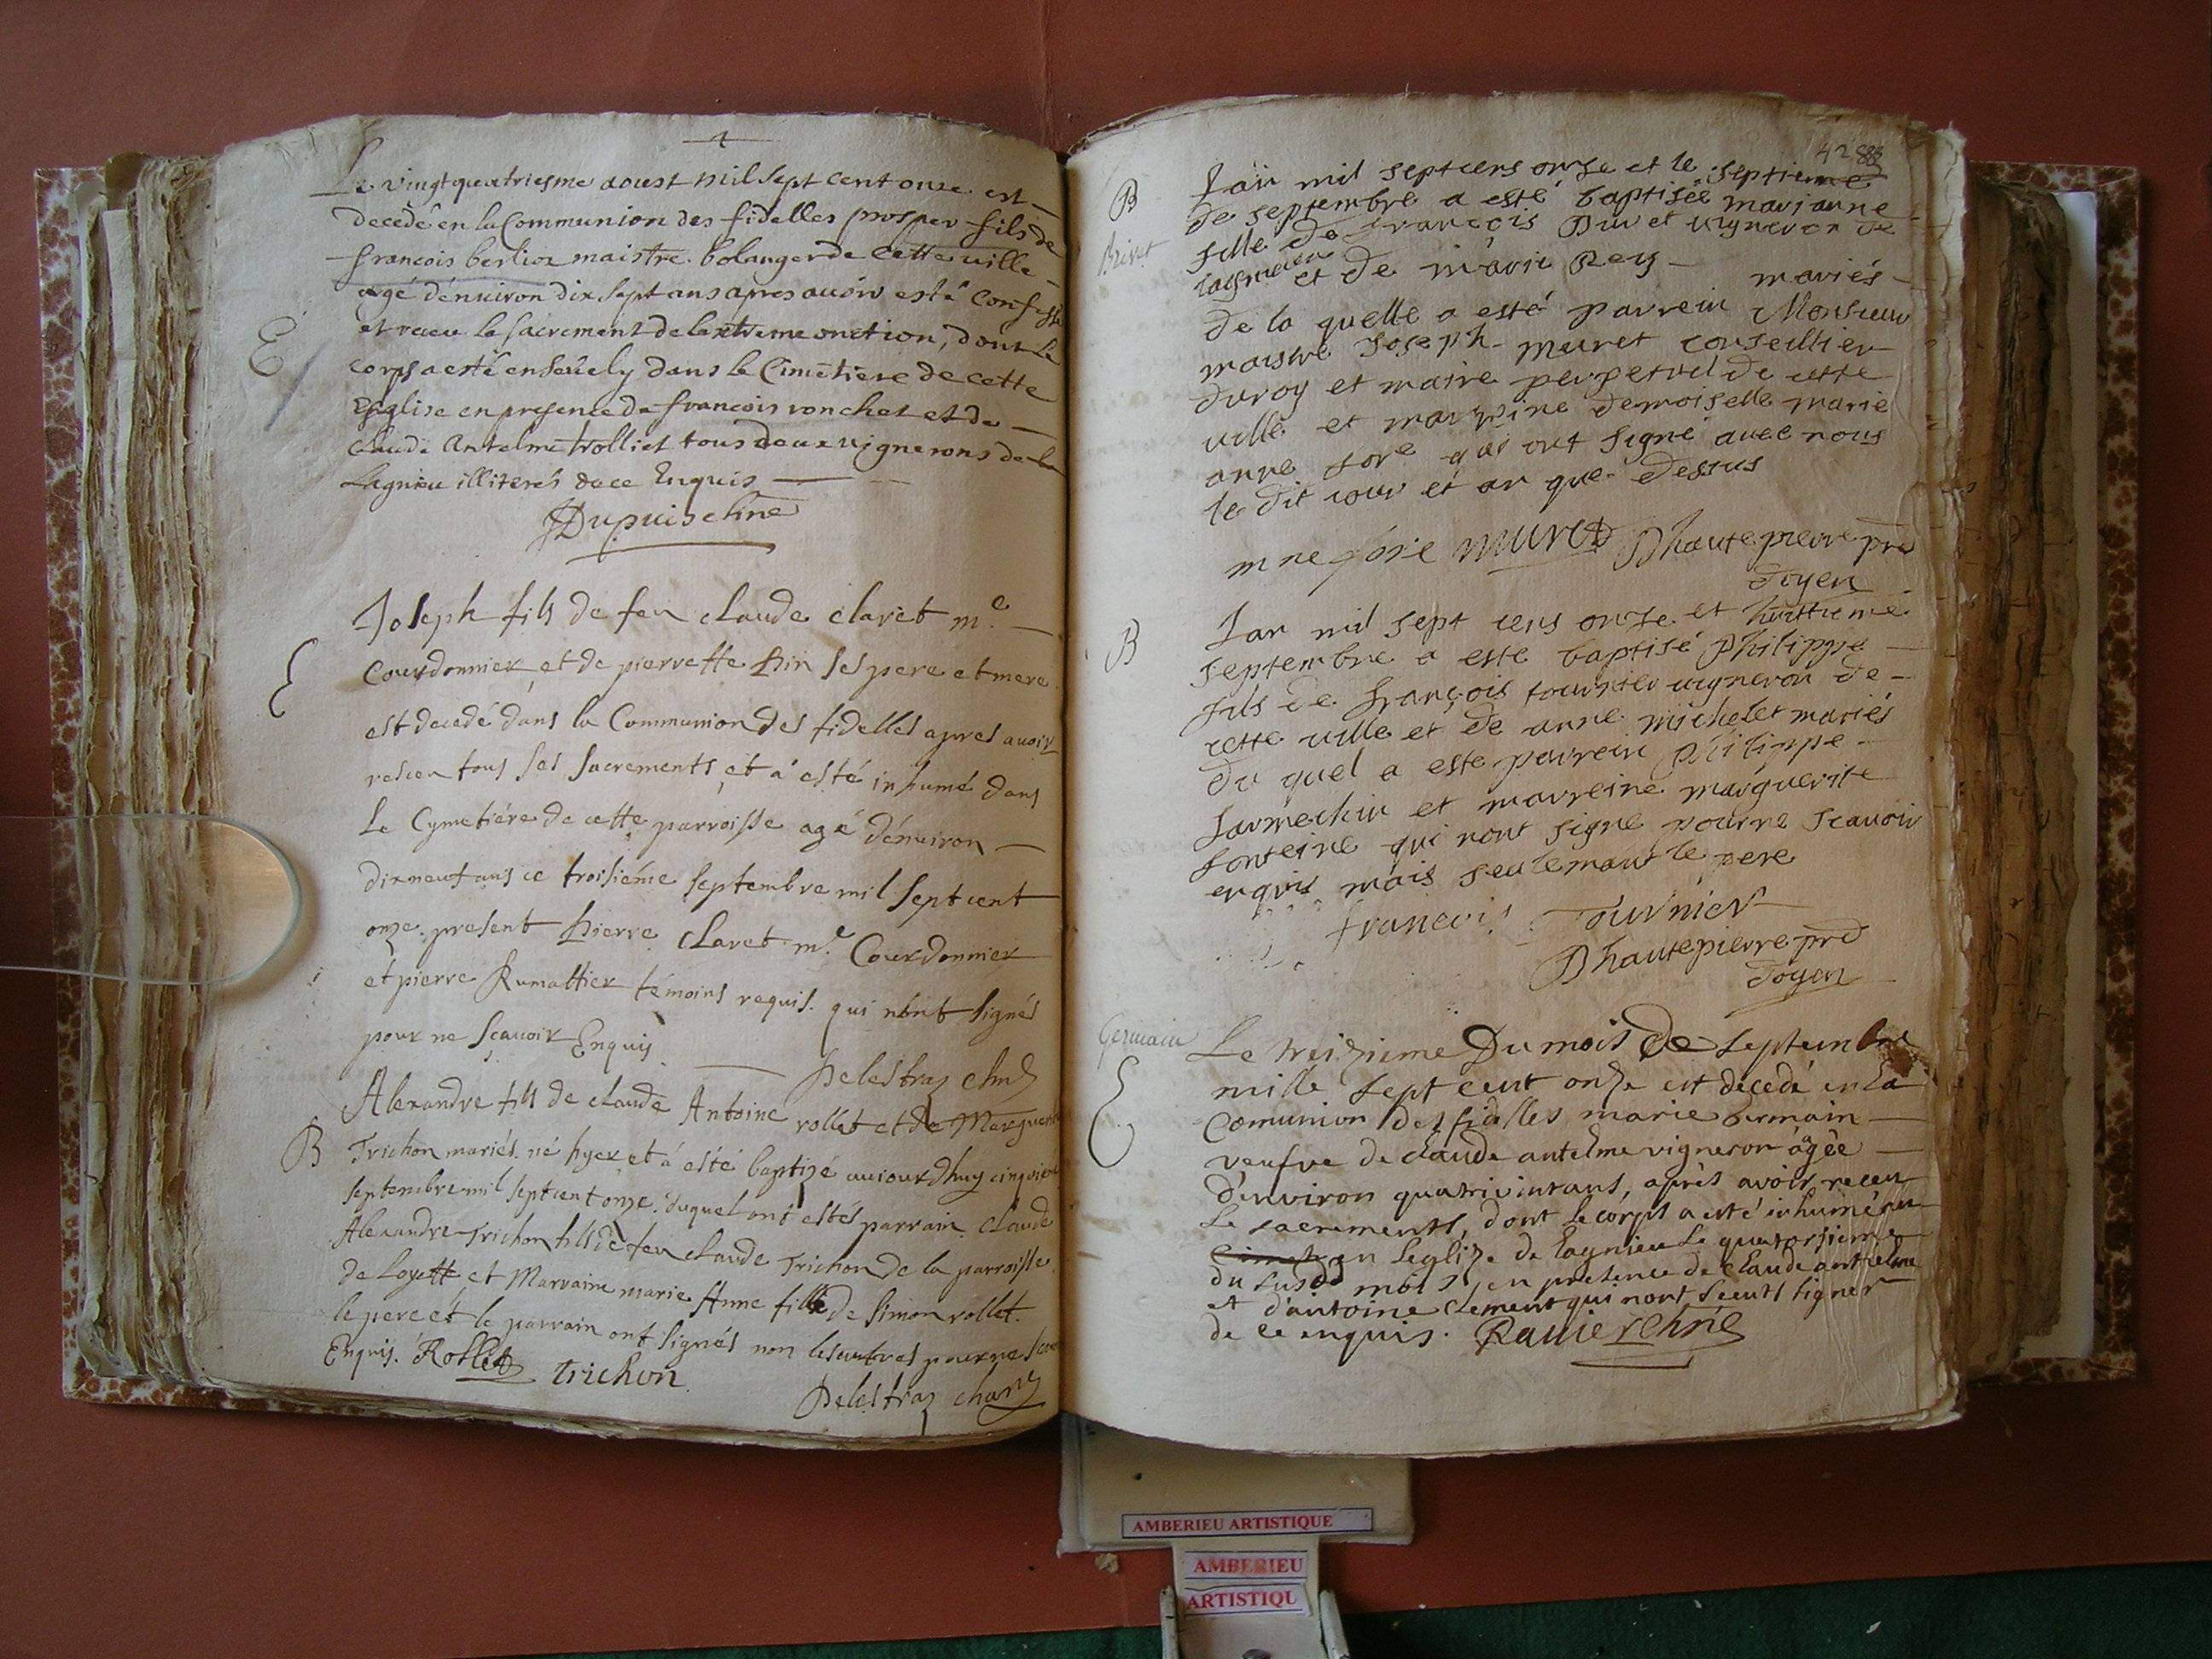 Le vingtquatriesme aoust mil sept cent onze est
decedé en la Communion des fidelles prosper fils de
francois berlioz maistre bolanger de cette ville
agé dénuiron dix sept ans apres auoir esté Confessé
et receu le sacrement de lextreme onction, dont le
E
corps a esté enseuely dans le Cimetiere de cette
Esglise en presence de francois ronchet et de
Claude Antelme trolliet tous deux vignerons de
Lagnieu illiterés de ce Enquis
Dupuis chne
Joseph fils de feu claude claret me.
Courdonnier et de pierrette hin ses pere et mere
E
est decedé dans la Communion des fidelles apres auoir
resceu tous ses sacrements et a esté inhumé dans
Le Cymetiére de cette parroisse agé dénuiron
dixneuf ans ce troisiéme septembre mil sept cent
onze. present pierre claret me. Courdonnier
et pierre Rumattier témoins requis. qui n'ont signés
pour ne scauoir Enquis
Delestraz
Alexandre fils de claude Antoine rollet et de Marguerite
B
Trichon mariés. né hyer et á esté baptizé auiourdhuy cinquiem
septembre mil sept cent onze. duquel ont estés parrain claude
Alexandre Trichon fils de feu claude Trichon de la parroisse
de Loyette et Marraine marie Anne fille de simon rollet.
le pere et le parrain ont signés non les autres pour ne
Enquis. Rollet trichon
Delestraz
42 88
B
Lan mil septcens onze et le septieme
de septembre a esté baptisée marianne
Brivet
fille de francois Brivet vigneron de
lagnieu et de marie Rey mariés
de la quelle a esté parrein Monsieur
maistre Joseph muret conseillier
du roy et maire perpetuel de cette
ville et marreine demoiselle marie
anne qui ont signé auec nous
le dit iour et an que dessus
muret Dhautepierre pre
doyen
B
Lan mil sept cens onze et huittieme
septembre a esté baptisé Philippe
fils de françois tournier vigneron de
cette ville et de anne michelet mariés
du quel a este parrein Philippe
Jarmechin et marreine marguerite
fonteine qui nont signe pour ne scauoir
enquis mais seulemant le pere
francois Tournier
Dhautepierre pre
doyen
Germain
Le treizieme Du mois de septembre
mille sept cent onze est decedé en la
E
Comunion des fidelles marie Germain
veufve de claude antelme vigneron âgêe
d'environ quatrivint ans, après avoir receu
le sacrements, dont le corps a esté inhumé au
Cimet en l'eglize de Lagnieu le quatorsieme
du susdd mois, en presence de claude antelme
et d'antoine clement qui nont sceuts signer
de ce enquis. Rauier chne
AMBERIEU ARTISTIQUE
AMBERIEU
ARTISTIQU